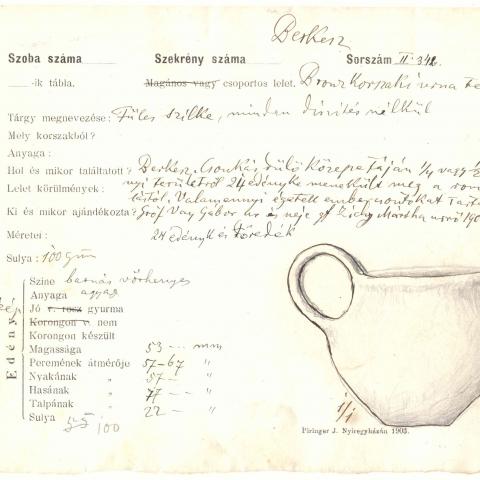 Berkesz
Szoba száma Szekrény száma Sorszám II. 342.
-ik tábla. Magános vagy csoportos lelet. Bronzkorszaki urna te
Tárgy megnevezése: Füles szilke, minden díszítés nélkül
Mely korszakból?
Anyaga:
Hol és mikor találtatott? Berkesz, Csonkás dülő közepe táján 1/4 vagy
Lelet körülmények: nyi területről 24 edényke menekült meg a rom
tástól. Valamennyi égetett embercsontokat tart
Ki és mikor ajándékozta? Gróf Vay Gábor úr és neje gf Zichy Martha úrnő 190
Méretei: 24 edényke és töredék
Sulya: 100 gm
Edény
Szine barnás vörhenyes
Anyaga agyag
Jó v. rosz gyurma
Korongon v. nem
Korongon készült
Magassága 53 — mm
Peremének átmérője 57-67 "
Nyakának " 57 — "
Hasának " 77 — "
Talpának " 22 — "
Sulya 100
1/1
Piringer J. Nyiregyházán 1903.